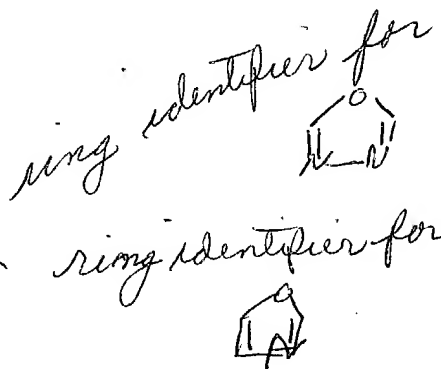 ring identifier for
O
N N
ring identifier for
O
N